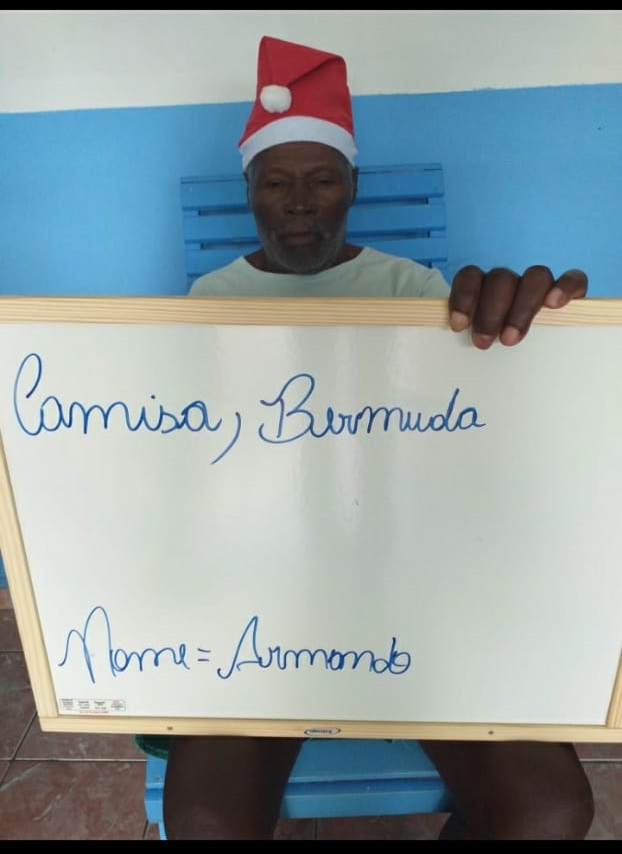 Camisa, Bermuda
Nome = Armando